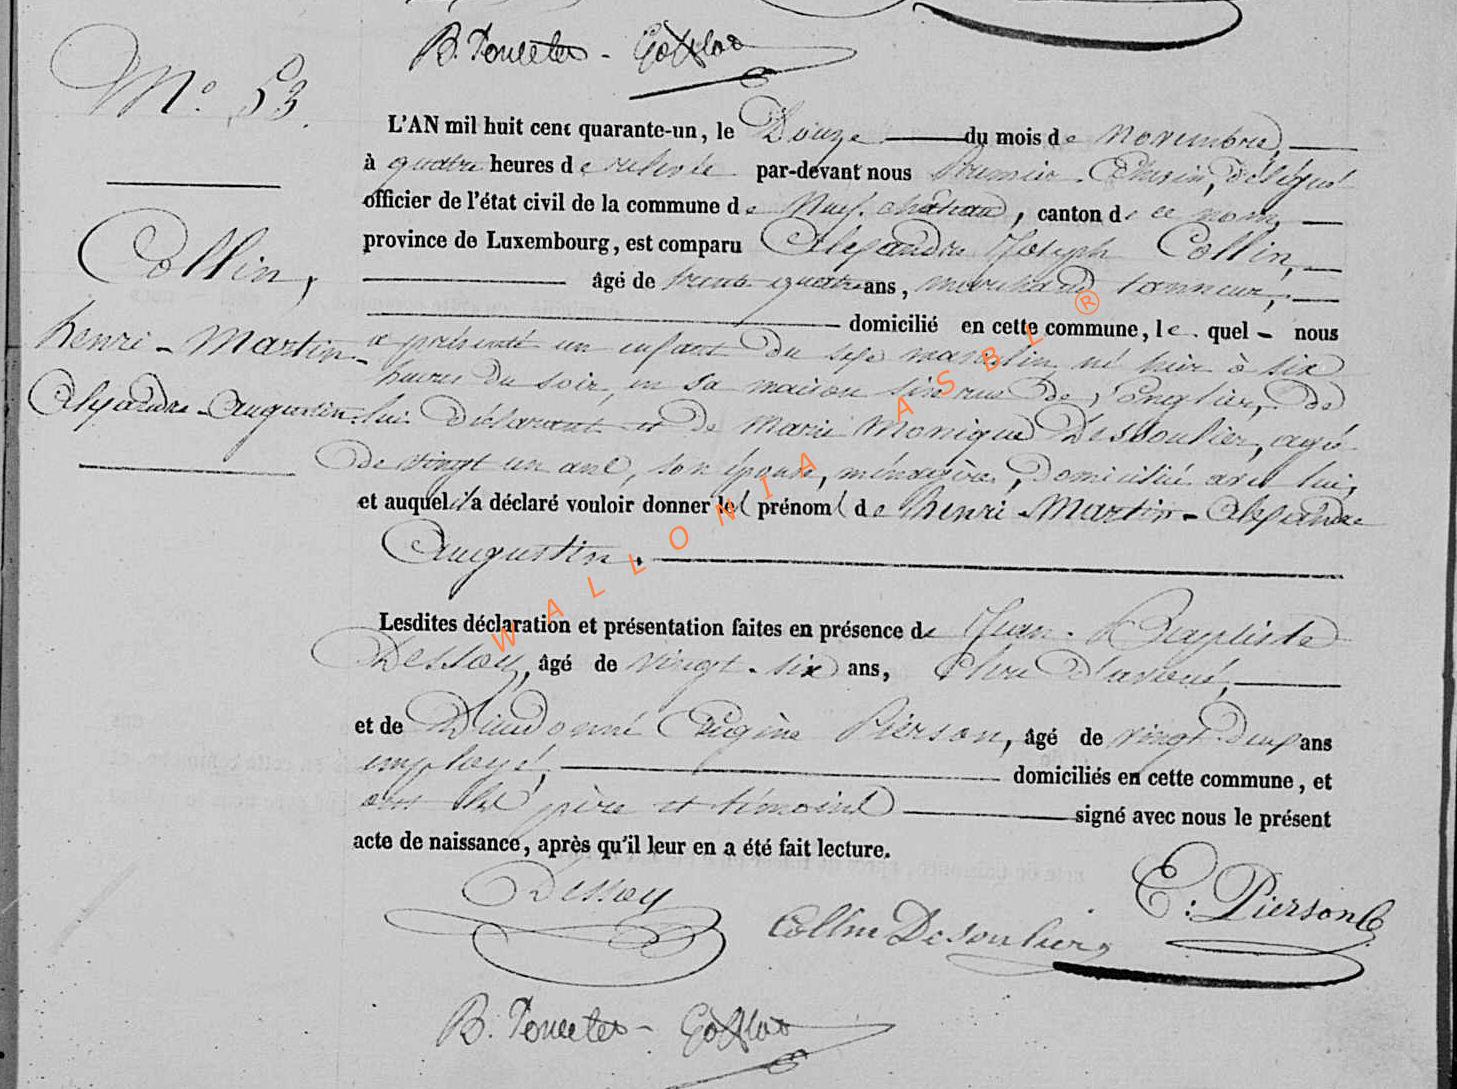 B. Poncelet - 
N° 53.
L'AN mil huit cent quarante-un, le Douze du mois de novembre,
à quatre heures de relevée par-devant nous Premier Echevin, délégué
officier de l'état civil de la commune de Neufchâteau, canton de ce nom,
province de Luxembourg, est comparu Alexandre Joseph Collin,
âgé de trente quatre ans, marchand tanneur,
domicilié en cette commune, lequel nous
a présenté un enfant du sexe masculin, né hier à six
heures du soir, en sa maison sise rue de
lui déclarant et de Marie Monique Dessoulier, agée
de vingt un ans, son épouse, ménagère, domiciliée avec lui,
et auquel il a déclaré vouloir donner les prénoms de henri-Martin-Alexandre
Augustin.
Collin,
henri-Martin-
Alexandre-Augustin.
Lesdites déclaration et présentation faites en présence de Jean-Baptiste
Dessoy, âgé de vingt-six ans,
et de Dieudonné Eugène Pierson, âgé de vingt deux ans
employé, domiciliés en cette commune, et
ont les père et témoins signé avec nous le présent
acte de naissance, après qu'il leur en a été fait lecture.
Dessoy
Collin Desoulier
E. Pierson
B. Poncelet -
WALLONIA ASBL ®